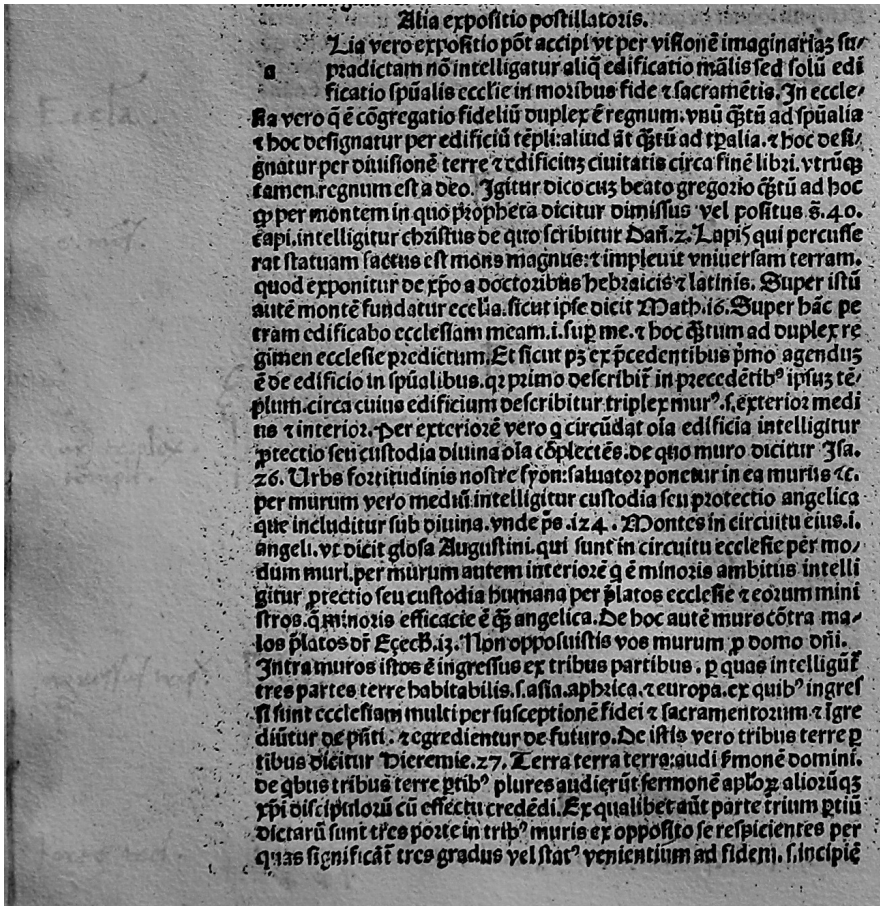 Alia expositio postillatoris.
Lia vero expositio pōt accipi vt per visionē imaginariaꝫ su/
a pradictam nō intelligatur aliq̄ edificatio mālis sed solū edi
ficatio spūalis ecclīe in moribus fide ⁊ sacramētis. In eccle-
sia vero q̄ ē cōgregatio fideliū duplex ē regnum. vnū q̄ꝫtū ad spūalia
⁊ hoc designatur per edificiū tēpli: aliud āt q̄ꝫtū ad tꝑalia. ⁊ hoc desi/
gnatur per diuisionē terre ⁊ edificiuꝫ ciuitatis circa finē libri. vtrūqꝫ
tamen. regnum est a deo. Igitur dico cuꝫ beato gregorio q̄ꝫtū ad hoc
ꝙ per montem in quo propheta dicitur dimissus vel positus s̄. 40.
capi. intelligitur christus de quo scribitur Dañ. 2. Lapis qui percusse
rat statuam factus est mons magnus: ⁊ impleuit vniuersam terram.
quod exponitur de xp̄o a doctoribus hebraicis ⁊ latinis. Super istū
autē montē fundatur ecclīa. sicut ipse dicit Math. 16. Super hāc pe
tram edificabo ecclesiam meam. i. sup̄ me. ⁊ hoc q̄ꝫtum ad duplex re
gimen ecclesie predictum. Et sicut pꝫ ex p̄cedentibus p̄mo agenduꝫ
ē de edificio in spūalibus. qꝛ primo describit̄ in precedētibꝰ ipsuꝫ tē/
plum. circa cuius edificium describitur triplex murꝰ. s. exterior medi
us ⁊ interior. Per exteriorē vero q̄ circūdat oīa edificia intelligitur
ꝓtectio seu custodia diuina oīa cōplectēs. de quo muro dicitur Isa.
26. Urbs fortitudinis nostre syon: saluator ponetur in ea murus ⁊c.
per murum vero mediū intelligitur custodia seu protectio angelica
que includitur sub diuina. vnde p̄s. 124. Montes in circuitu eius. i.
angeli. vt dicit glosa Augustini. qui sunt in circuitu ecclesie per mo/
dum muri. per murum autem interiorē q̄ ē minoris ambitus intelli
gitur ꝓtectio seu custodia humana per p̄latos ecclesie ⁊ eorum mini
stros. q̄ minoris efficacie ē q̄ꝫ angelica. De hoc autē muro cōtra ma-
los p̄latos dr̄ Eçech. 13. Non opposuistis vos murum ꝓ domo dn̄i.
Intra muros istos ē ingressus ex tribus partibus. ꝑ quas intelligūt̄
tres partes terre habitabilis. s. asia. aphrica. ⁊ europa. ex quibꝰ ingres
si sunt ecclesiam multi per susceptionē fidei ⁊ sacramentorum ⁊ īgre
diūtur de pn̄ti. ⁊ egredientur de futuro. De istis vero tribus terre ꝑ
tibus dicitur Hieremie. 27. Terra terra terra: audi s̄monē domini.
de qͥbus tribus terre ꝑtibꝰ plures audierūt sermonē aplōꝝ aliorūqꝫ
xp̄i discipulorū cū effectu credēdi. Ex qualibet aūt parte trium ꝑtiū
dictarū sunt tres porte in tribꝰ muris ex opposito se respicientes per
quas significāt̄ tres gradus vel statꝰ venientium ad fidem. s. incipiē